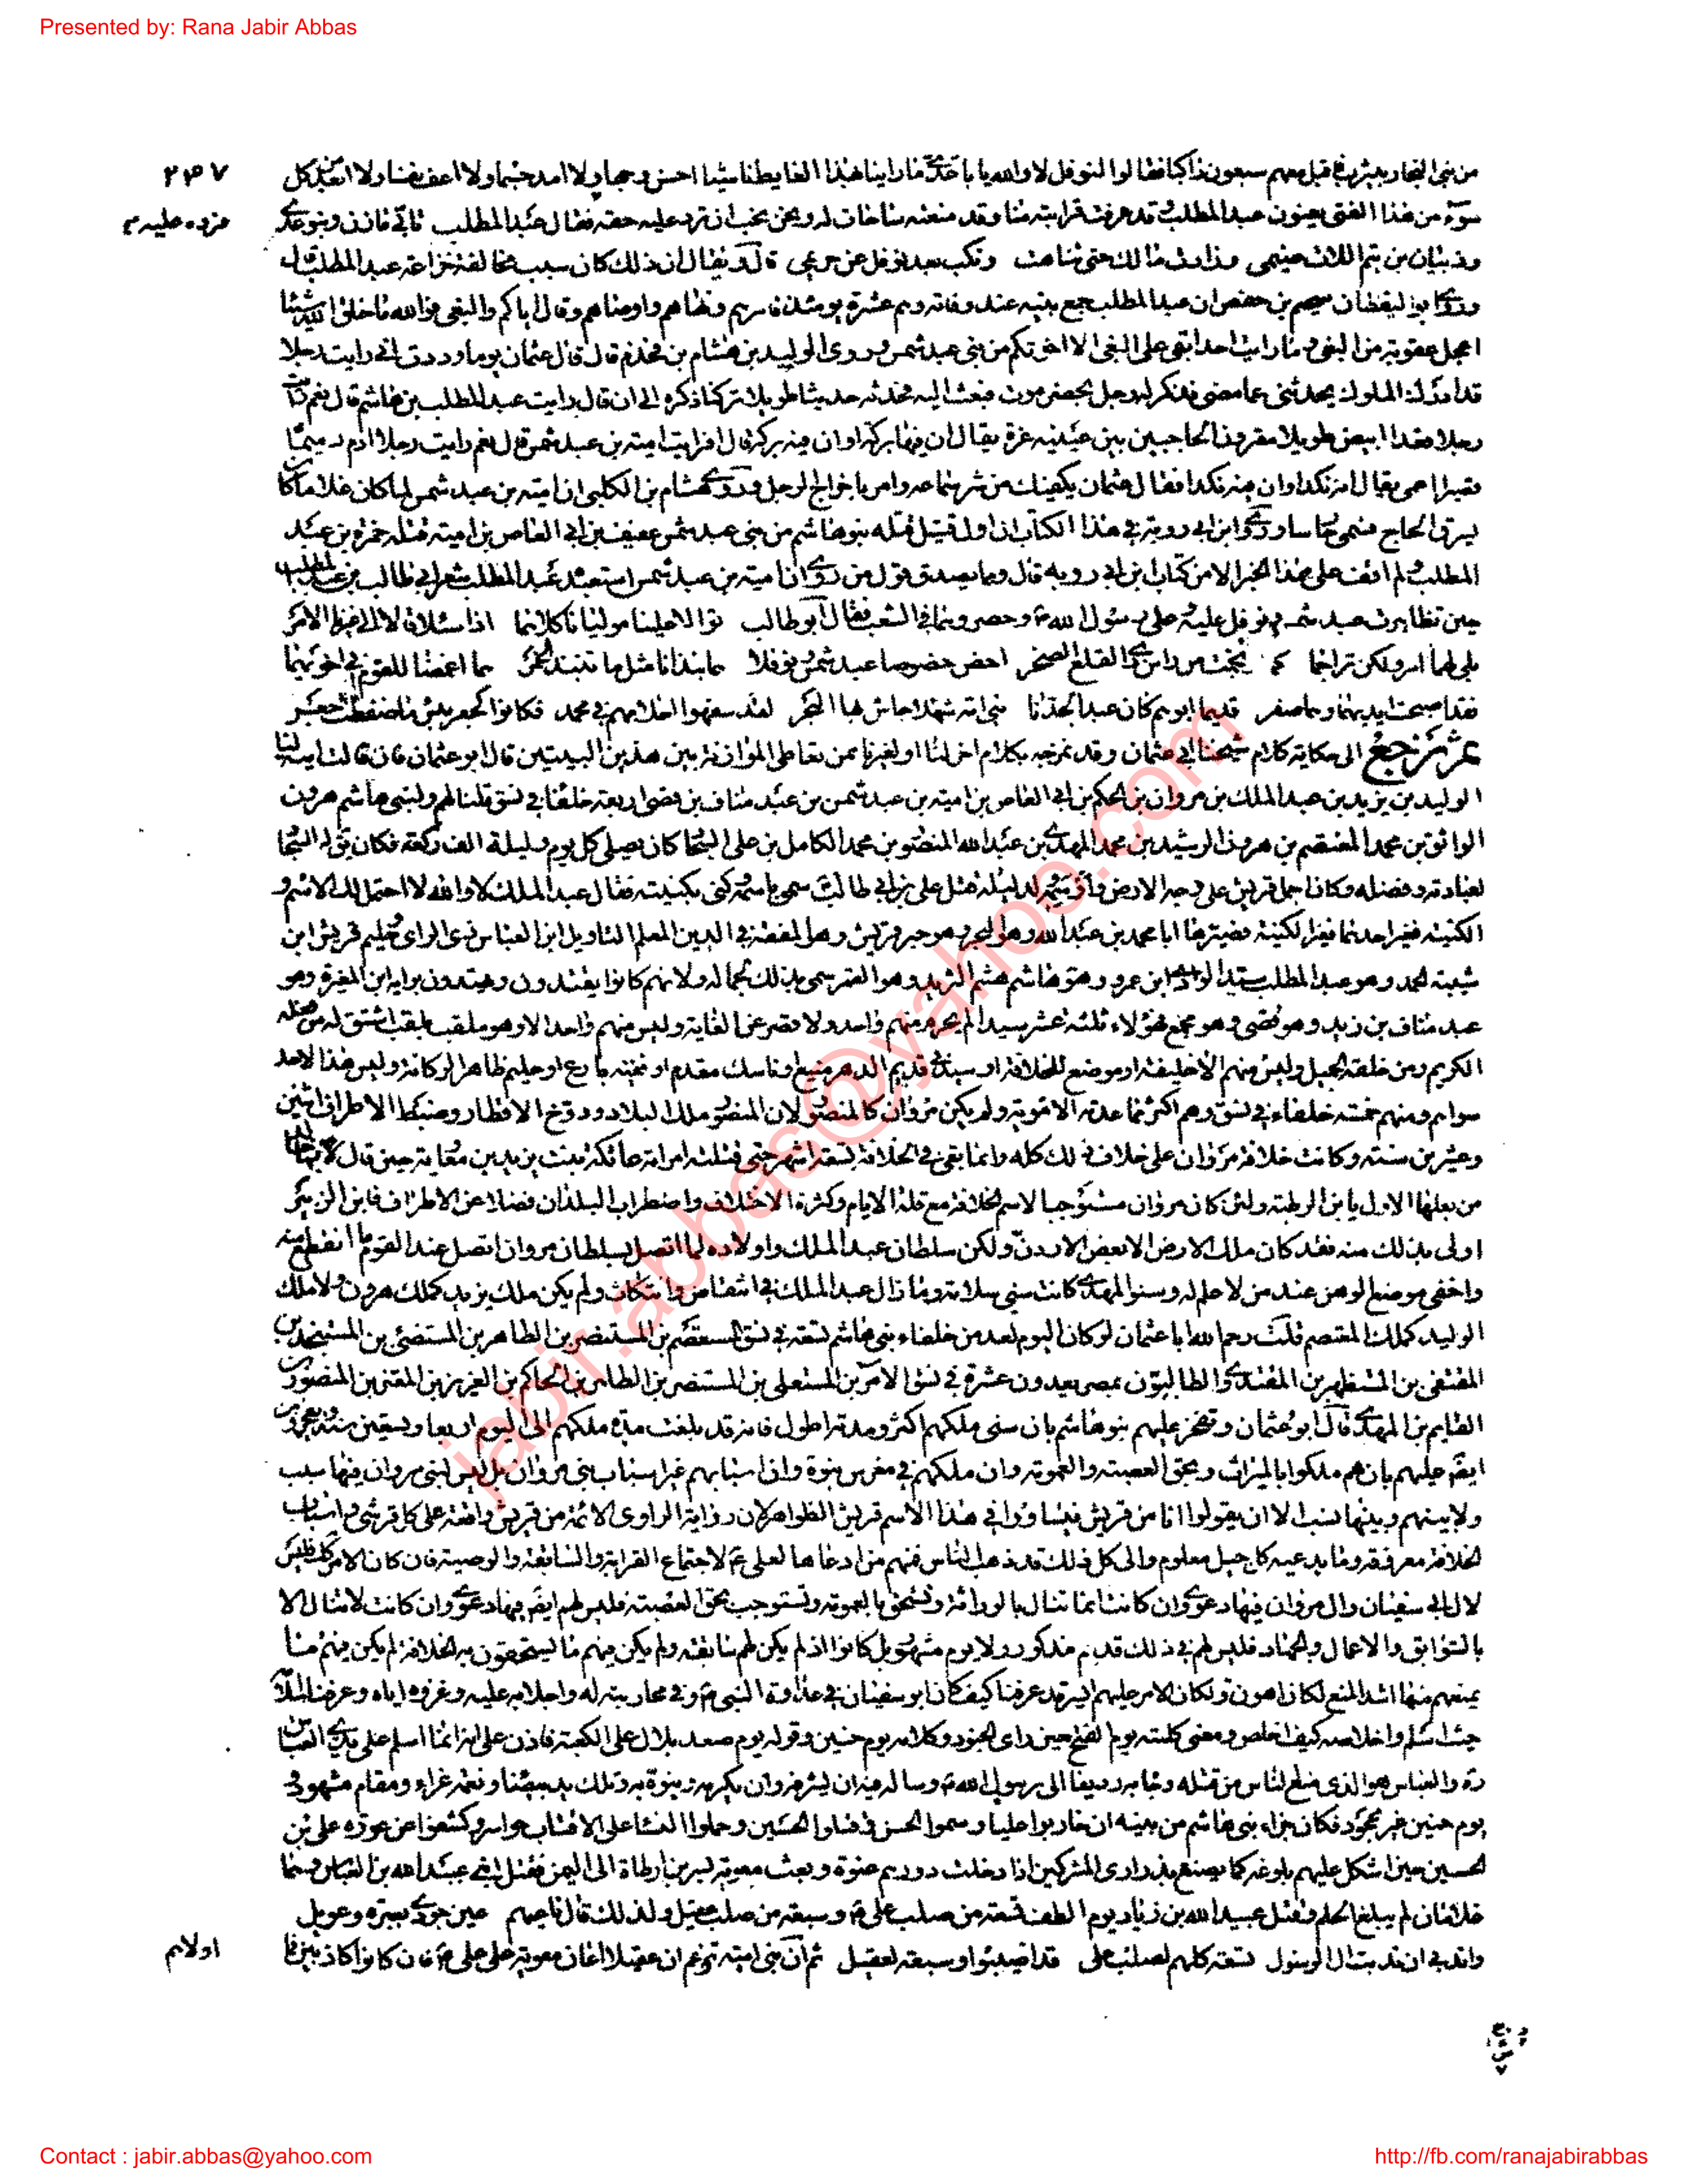 Presented by: Rana Jabir Abbas
۲۴۷
من بنی النجار بیثرب قبل معهم سبعون راکبا فقالوا لنوفل لا والله یا با عدی ما راینا بهذا الغایط ناشیا احسن وجها ولا امد جسما ولا اعف نفسا ولا ابعد من کل
سوء من هذا الفتی یعنون عبد المطلب وقد عرفت قرابته منا وقد منعته ساحات له ونحن نحب ان ترد علیه حقه فقال عبد المطلب تابی مازن وبنو عدی
فرده علیه م
وذبیان بن تیم اللات ضیمی وذادت مالک حتی تناهت ونکب بعد نوفل عن حریمی قال ویقال ان ذلک کان سبب مخالفة خزاعة عبد المطلب قال
وروی ابو الیقظان سحیم بن حفص ان عبد المطلب جمع بنیه عند وفاته وهم عشرة یومئذ فامرهم ونهاهم واوصاهم وقال ایاکم والبغی فوالله ما خلق الله شیئا
اعجل عقوبة من البغی وما رایت احدا بقی علی البغی الا اخوتکم من بنی عبد شمس وروی الولید بن هشام بن قحذم قال قال عثمان یوما وددت انی رایت رجلا
قد ادرک الملوک یحدثنی عما مضی فذکر له رجل بحضرموت فبعث الیه فحدثه حدیثا طویلا ترکنا ذکره الی ان قال رایت عبد المطلب بن هاشم قال نعم رایت
رجلا قعدا ابیض طویلا مقرون الحاجبین بین عینیه غرة یقال ان فیها برکة وان فیه برکة قال افرایت امیة بن عبد شمس قال نعم رایت رجلا ادم دمیما
قصیرا اعمی یقال انه نکد وان فیه نکدا فقال عثمان یکفیک من شر سماعه وامر باخراج الرجل وروی هشام بن الکلبی ان امیة بن عبد شمس لما کان غلاما کان
یسرق الحاج فسمی حارسا وروی ابن ابی رویة فی هذا الکتاب ان اول قتیل قتله بنو هاشم من بنی عبد شمس عفیف بن ابی العاص بن امیة قتله حمزة بن عبد
المطلب ولم اقف علی هذا الخبر الا من کتاب ابن ابی رویه قال ومما یصدق قول من روی ان امیة بن عبد شمس استعبده عبد المطلب شعر ابی طالب بن عبد المطلب
حین تظاهرت عبد شمس ونوفل علیه وعلی رسول الله ص وحصروهما فی الشعب فقال ابو طالب توالا علینا مولیانا کلاهما اذا سئلا قالا الی غیرنا الامر
بلی لهما امر ولکن تراجما کما ارتجت من راس ذی القلع الصخر اخص خصوصا عبد شمس ونوفلا هما نبذانا مثل ما تنبذ الجمر هما اغمضا للقوم فی اخویهما
فقد اصبحت ایدیهما وهما صفر قدیما ابوهم کان عبدا لجدنا بنی امة شهلاء جاش بها البحر لقد سفهوا احلامهم فی محمد فکانوا کجعر بئس ما ضفطت جعر
ثم نرجع الی حکایة کلام شیخنا ابی عثمان وقد نمزجه بکلام اخر لنا او لغیرنا ممن تعاطی الموازنة بین هذین البیتین قال ابو عثمان فان قالت امیة لنا
الولید بن یزید بن عبد الملک بن مروان بن الحکم بن ابی العاص بن امیة بن عبد شمس بن عبد مناف بن قصی اربعة خلفا فی نسق قلنا لهم ولبنی هاشم هرون
الواثق بن محمد المعتصم بن هرون الرشید بن محمد المهدی بن عبد الله المنصور بن محمد الکامل بن علی السجاد کان یصلی کل یوم ولیلة الف رکعة فکان یقال له السجاد
لعبادته وفضله وکان اجمل قریش علی وجه الارض واوسمها ولد لیلة قتل علی بن ابی طالب سمی باسمه وکنی بکنیته فقال عبد الملک لا والله لا احتمل لک الاسم و
الکنیة فغیر احدهما فغیر الکنیة فصیرها ابا محمد بن عبد الله وهو البحر وهو حبر قریش وهو المفقه فی الدین المعلم التاویل ابن العباس ذی الرای وحلیم قریش ابن
شیبة الحمد وهو عبد المطلب سید الوادی ابن عمرو وهو هاشم هشم الثرید وهو القمر سمی بذلک لجماله ولانهم کانوا یقتدون ویهتدون برایه ابن المغیرة وهو
عبد مناف بن زید وهو قصی وهو مجمع فهؤلاء ثلثة عشر سیدا لم یحرم منهم واحد ولا قصر عن الغایة ولیس منهم واحد الا وهو ملقب بلقب اشتق له من فعله
الکریم ومن خلقه الجمیل ولیس منهم الا خلیفة او موضع للخلافة او سید فی قدیم الدهر منیع او ناسک مقدم او فقیه بارع او حلیم ظاهر الرکانة ولیس هذا لاحد
سواهم ومنهم خمسة خلفاء فی نسق وهم اکثر مما عدته الامویة ولم یکن مروان کالمنصور لان المنصور ملک البلاد ودوخ الاقطار وضبط الاطراف اثنین
وعشرین سنة وکانت خلافة مروان علی خلاف ذلک کله وانما بقی فی الخلافة تسعة اشهر حتی قتلته امراته عاتکة بنت یزید بن معاویة حین قال لابنها خالد
من بعلها الاول یا ابن الرطبة ولئن کان مروان مستوجبا لاسم الخلافة مع قلة الایام وکثرة الاختلاف واضطراب البلدان فضلا عن الاطراف فابن الزبیر
اولی بذلک منه فقد کان ملک الارض الا بعض الاردن ولکن سلطان عبد الملک واولاده لما اتصل بسلطان مروان اتصل عند القوم ما انقطع منه
واخفی موضع الوهن عند من لا علم له وسنو المهدی کانت سنی سلامة وما زال عبد الملک فی انتقاض وانتکاث ولم یکن ملک یزید کملک هرون ولا ملک
الولید کملک المعتصم قلت رحم الله ابا عثمان لو کان الیوم لعد من خلفاء بنی هاشم تسعة فی نسق المستعصم بن المستنصر بن الظاهر بن المستضئ بن المستنجد بن
المقتفی بن المستظهر بن المقتدی والطالبیون بمصر یعدون عشرة فی نسق الامر بن المستعلی بن المستنصر بن الظاهر بن الحاکم بن العزیز بن المعتز بن المنصور بن
القایم بن المهدی قال ابو عثمان وتفخر علیهم بنو هاشم بان سنی ملکهم اکثر ومدته اطول فانه قد بلغت مدة ملکهم الی الیوم اربعا وتسعین سنة ویفخرون
ایضا علیهم بانهم ملکوا بالمیراث وبحق العصبة والعمومة وان ملکهم فی مغرس نبوة وان اسبابهم غیر اسباب بنی مروان بل لیس لبنی مروان فیها سبب
ولا بینهم وبینها نسب الا ان یقولوا انا من قریش فیساووا فی هذا الاسم قریش الظواهر لان روایة الراوی الائمة من قریش واقعة علی کل قرشی واسباب
الخلافة معروفة وما یدعیه کل جیل معلوم والی کل ذلک قد ذهب الناس فمنهم من ادعاها لعلی ع لاجتماع القرابة والسابقة والوصیة فان کان الامر کذلک فلیس
لال ابی سفیان وال مروان فیها دعوی وان کانت انما تنال بالوراثة وتستحق بالعمومة وتستوجب بحق العصبة فلیس لهم ایضا فیها دعوی وان کانت لا تنال الا
بالسوابق والاعمال والجهاد فلیس لهم فی ذلک قدم مذکور ولا یوم مشهور بل کانوا اذ لم یکن لهم سابقة ولم یکن فیهم ما یستحقون به الخلافة لم یکن فیهم ما
یمنعهم منها اشد المنع لکان اهون ولکان الامر علیهم ایسر قد عرفنا کیف کان ابو سفیان فی عداوة النبی ص وفی محاربته له واجلابه علیه وغزوه ایاه وعرفنا اسلامه
حیث اسلم واخلاصه کیف اخلص ومعنی کلمته یوم الفتح حین رای الجنود وکلامه یوم حنین وقوله یوم صعد بلال علی الکعبة فاذن علی انه انما اسلم علی یدی العباس
ره والعباس هو الذی منع الناس من قتله وجاء به ردیفا الی رسول الله ص وساله فیه ان یشرفه وان یکرمه وینوه به وتلک ید بیضاء ونعمة غراء ومقام مشهود
یوم حنین غیر مجحود فکان جزاء بنی هاشم من بنیه ان حاربوا علیا وسموا الحسن وقتلوا الحسین وحملوا النساء علی الاقتاب حواسر وکشفوا عن عورة علی بن
الحسین حین اشکل علیهم بلوغه کما یصنع بذراری المشرکین اذا دخلت دورهم عنوة وبعث معویة بسر بن ارطاة الی الیمن فقتل ابنی عبید الله بن العباس وهما
غلامان لم یبلغا الحلم وقتل عبید الله بن زیاد یوم الطف تسعة من صلب علی ع وسبعة من صلب عقیل ولذلک قال ناعیهم عین جودی بعبرة وعویل
واندبی ان ندبت ال الرسول تسعة کلهم لصلب علی قد اصیبوا وسبعة لعقیل ثم ان بنی امیة تزعم ان عقیلا اعان معویة علی علی ع فان کانوا کاذبین فما
اولاهم
jabir.abbas@yahoo.com
Contact : jabir.abbas@yahoo.com
http://fb.com/ranajabirabbas